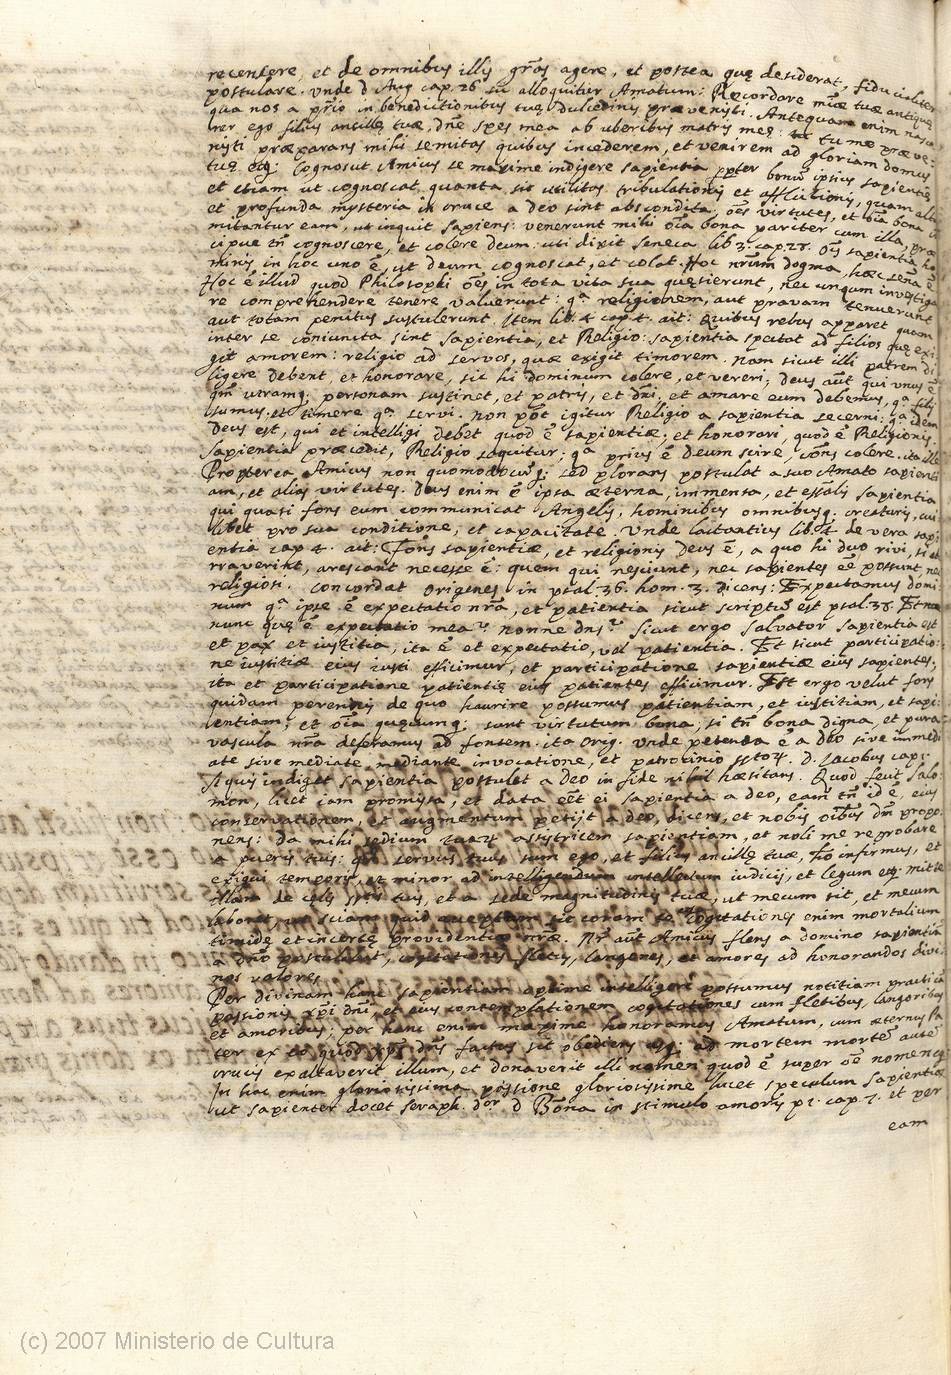 recensere, et de omnibus illis grãs agere, et postea quę desiderat, fiducialiter
postulare. Unde d Aug cap. 26 sic alloquitur Amatum: Recordare miæ tuæ antiquę
qua nos a prĩo in benedictionibus tuę dulcedinis prævenisti. Antequam enim nasce
rer ego filius ancillę tuæ, dñe spes mea ab uberibus matris meę: tu me præve
nisti præparans mihi semitas quibus incederem, et venirem ad gloriam domus
tuę. Cognoscit Amicus se maxime indigere sapientia ppter bonũ ipsius sapientię
et etiam ut cognoscat quanta sit utilitas tribulationis et afflictionis, quam alta
et profunda mysteria in cruce a deo sint abscondita, oẽs virtutes, et oĩa bona
mitantur eam, ut inquit sapiens: venerunt mihi oĩa bona pariter cum illa, præ
cipue tñ cognoscere, et colere deum. uti dixit Seneca lib 3. cap. 28. oĩs sapientia ho
minis in hoc uno ẽ, ut deum cognoscat, et colat. Hoc nr̃um dogma, hæc sẽna ẽ
Hoc ẽ illud quod Philosophi oẽs in tota vita sua quęsierunt, nec unquam investiga
re comprehendere tenere valuerunt: qª religionem, aut pravam tenuerunt
aut totam penitus sustulerunt. Item lib. 4 cap. 4. ait: Quibus rebus apparet quam
inter se coniuncta sint sapientia, et Religio: sapientia spectat ad filios quę exi
git amorem: religio ad servos, quæ exigit timorem. Nam sicut illi patrem di
ligere debent, et honorare, sic hi dominum colere, et vereri; deus aũt qui unus ẽ
qm̃ utramq; personam sustinet, et patris, et dñi, et amare eum debemus, qª filij
sumus, et timere qª servi. non põt igitur Religio a sapientia secerni: qª idem
Deus est, qui et intelligi debet quod ẽ sapientiæ, et honorari, quod ẽ Religionis.
Sapientia præcedit, Religio sequitur; qª prius ẽ Deum scire, cõns colere. ita ille
Propterea Amicus non quomodocũq; sed plorans postulat a suo Amato sapienti
am, et alias virtutes. Deus enim ẽ ipsa æterna, immensa, et essãlis sapientia
qui quasi fons eum communicat Angelis, hominibus omnibusq. creaturis, cui
libet pro sua conditione, et capacitate. Unde lactantius lib. 4. de vera sapi
entia cap 4. ait: Fons sapientiæ, et religionis Deus ẽ, a quo hi duo rivi, si ab
rraverint, arescant necesse ẽ: quem qui nesciunt, nec sapientes eẽ possunt nec
religiosi. Concordat Origenes in psal. 36. hom. 3. dicens: Expectamus domi
num qª ipse ẽ expectatio nr̃a, et patientia sicut scriptũ est psal. 38. Et
nunc quę ẽ expectatio mea? nonne dns? Sicut ergo salvator sapientia est
et pax et iustitia, ita ẽ et expectatio, vel patientia. Et sicut participatio
ne iustitiæ eius iusti efficimur, et participatione sapientiæ eius sapientes,
ita et participatione patientię eius patientes efficimur. Est ergo velut fons
quidam perennis de quo haurire possumus patientiam, et iustitiam, et sapi
entiam, et oĩa quęcunq; sunt virtutum bona, si tñ bona digna, et pura
vascula nr̃a deferamus ad fontem. ita Orig. Unde petenda ẽ a deo sive immedi
ate sive mediate mediante invocatione, et patrocinio sstorũ. D. Iacobus cap. 1.
Si quis indiget sapientia postulet a deo in fide nihil hæsitans. Quod fecit Salo
mon, licet iam promissa, et data eẽt ei sapientia a deo, eam tñ id ẽ, eius
conservationem, et augmentum petijt a deo, dicens, et nobis oĩbus dm̃ propo
nens: da mihi sedium tuarũ assistricem sapientiam, et noli me reprobare
a pueris tuis: qª servus tuus sum ego, et filius ancillę tuæ, hõ infirmus, et
exigui temporis, et minor ad intelligendum intellectum iudicij, et legum mitte
illam de cęlis sstis tuis, et a sede magnitudinis tuæ, ut mecum sit, et mecum
laboret, ut sciam quid acceptum sit coram te. Cogitationes enim mortalium
timidę et incertę providentiæ nr̃æ. Nr̃ aũt Amicus flens a domino sapientia
a dño postulabat, cogitationes fletus, langores, et amores ad honorandos divi
nos valores.
Per divinam hanc sapientiam optime intelligere possumus notitiam practicã
passionis xp̃i dñi, et eius contemplationem cogitationes cum fletibus, langoribus
et amoribus; per hanc enim maxime honoramus Amatum, cum æternus Pa
ter ex eo quod xp̃s dñs factus sit obediens usq; ad mortem mortẽ autẽ
crucis exaltaverit illum, et donaverit illi nomen quod ẽ super oẽ nomen
In hac enim gloriosissima passione gloriosissime lucet speculum sapientiæ
ut sapienter docet seraph. dor. d Bõna in stimulo amoris p. 1. cap. 7. et per
eam
(c) 2007 Ministerio de Cultura